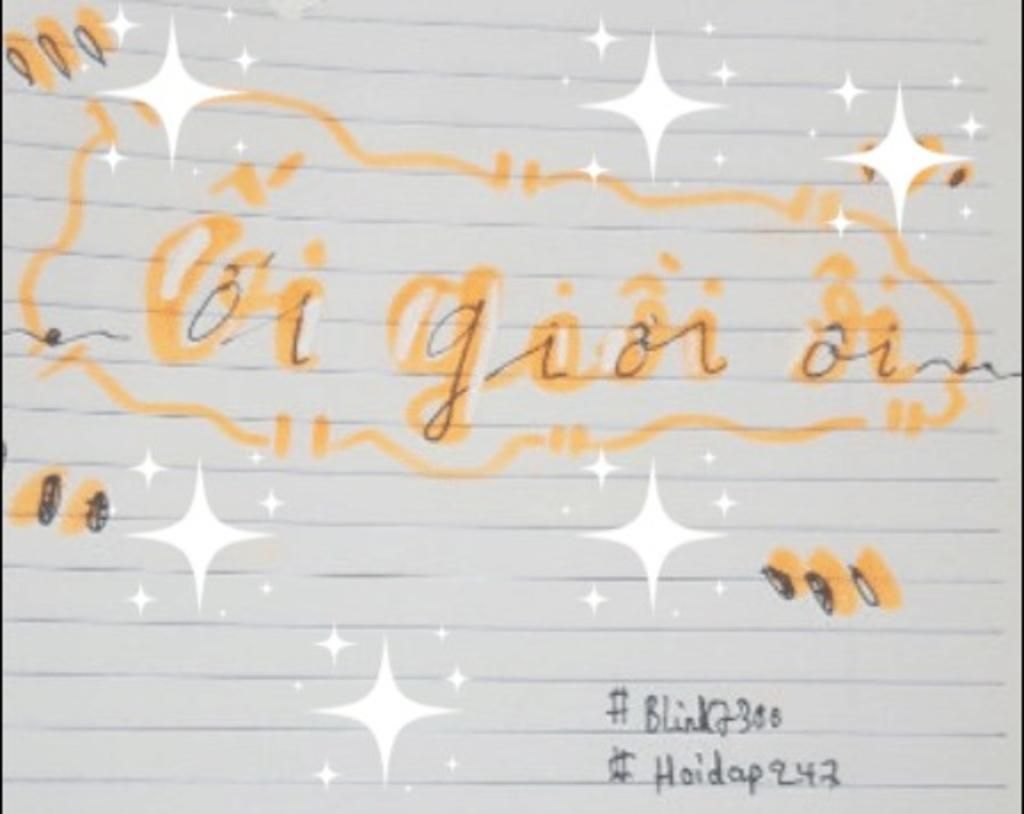 Ối giồi ôi
# Blink7300
# Hoidap247